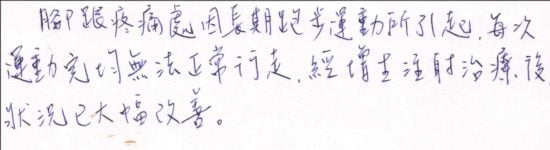 腳跟疼痛處因長期跑步運動所引起,每次
運動完均無法正常行走,經增生注射治療後
狀況已大幅改善。